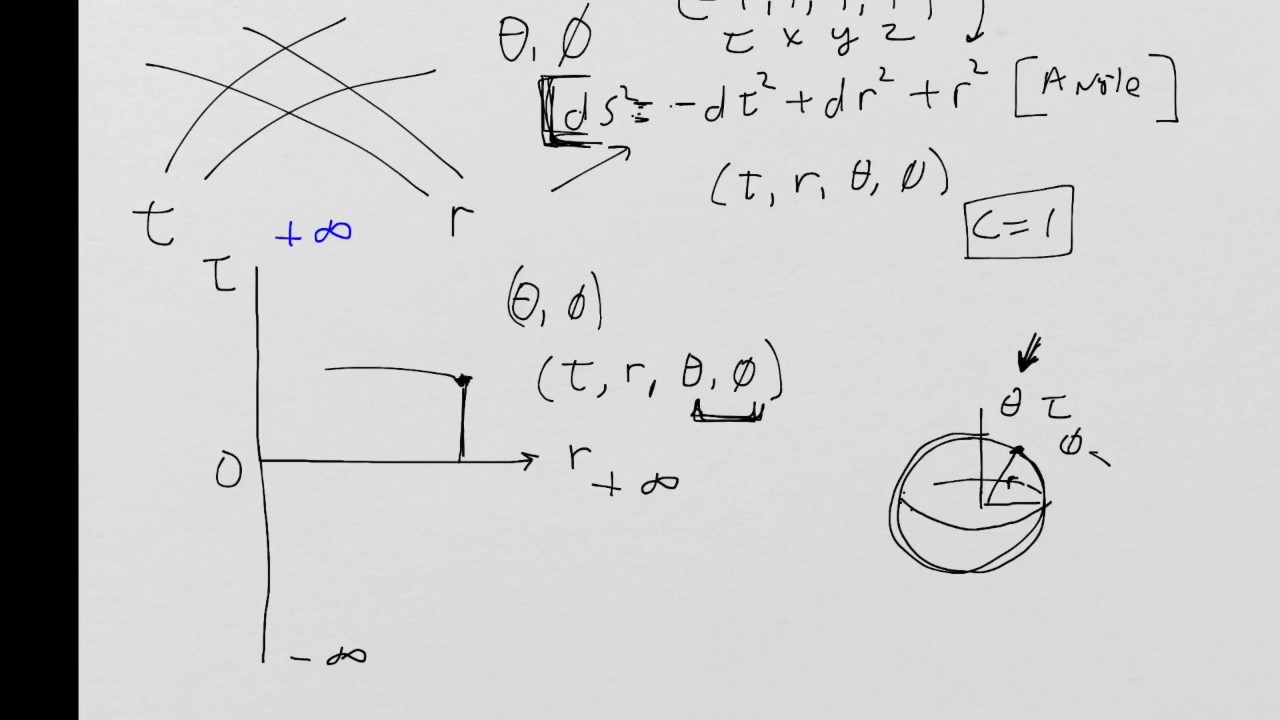 θ, ϕ
t x y z
ds² = -dt² + dr² + r² [Angle]
(t, r, θ, ϕ)
c = 1
t r
+∞
t
(θ, ϕ)
(t, r, θ, ϕ)
0
r
+∞
-∞
θ t
ϕ
r